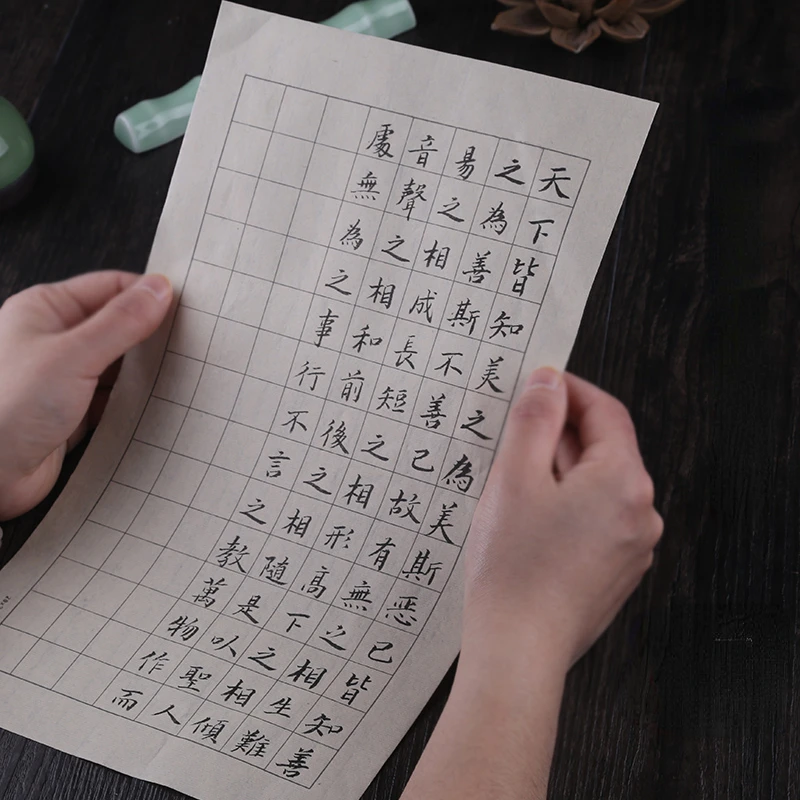 天下皆知美之為美斯惡已皆知善
之為善斯不善已故有無之相生難
易之相成長短之相形高下之相傾
音聲之相和前後之相隨是以聖人
處無為之事行不言之教萬物作而